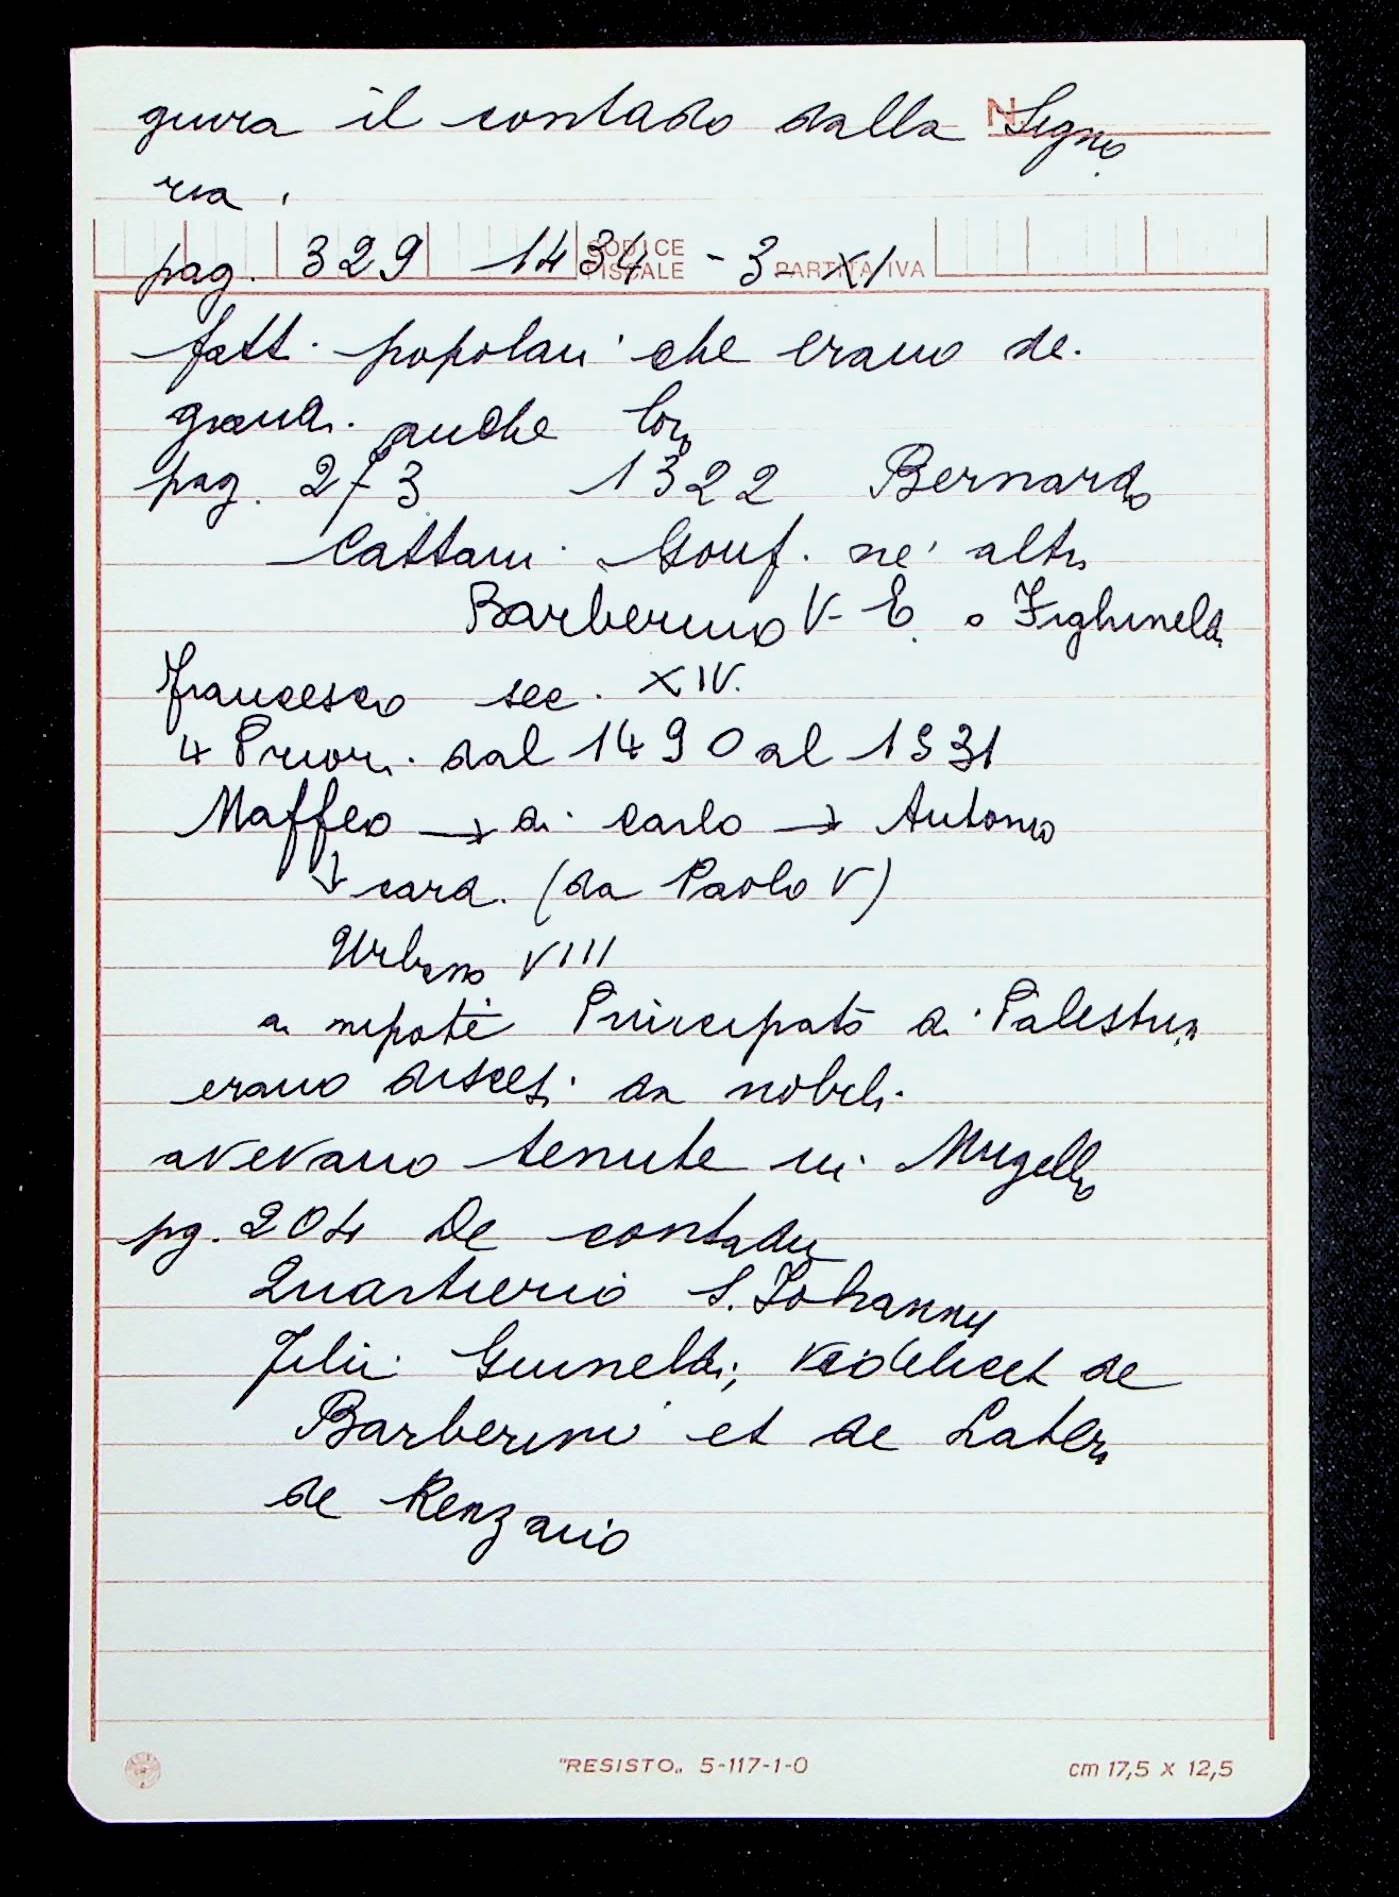 giura il contado dalla Signo
ria.
N.
pag. 329 1434 - 3 - XI
CODICE FISCALE PARTITA IVA
fatti popolari che erano de
grandi anche loro
pag. 273 1322 Bernardo
Cattani Gonf. nè altri
Barberino V-E. o Fighineldi
Francesco sec. XIV.
4 Priori dal 1490 al 1531
Maffeo → di Carlo → Antonio
↓ card. (da Paolo V)
Urbano VIII
a nipote Principato di Palestrina
erano discesi da nobili
avevano tenute in Mugello
pg. 204 De contadu
Quarterio S. Johannis
Filii Guineldi, videlicet de
Barberino et de Latera
de Renzano
"RESISTO„ 5-117-1-0 cm 17,5 x 12,5